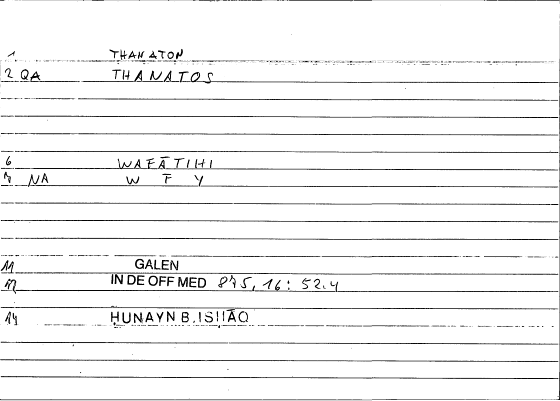 1 THANATON
2 QA THANATOS
6 WAFĀTIHI
7 NA W F Y
11 GALEN
12 IN DE OFF MED 875, 16: 52.4
14 ḤUNAYN B. ISḤĀQ